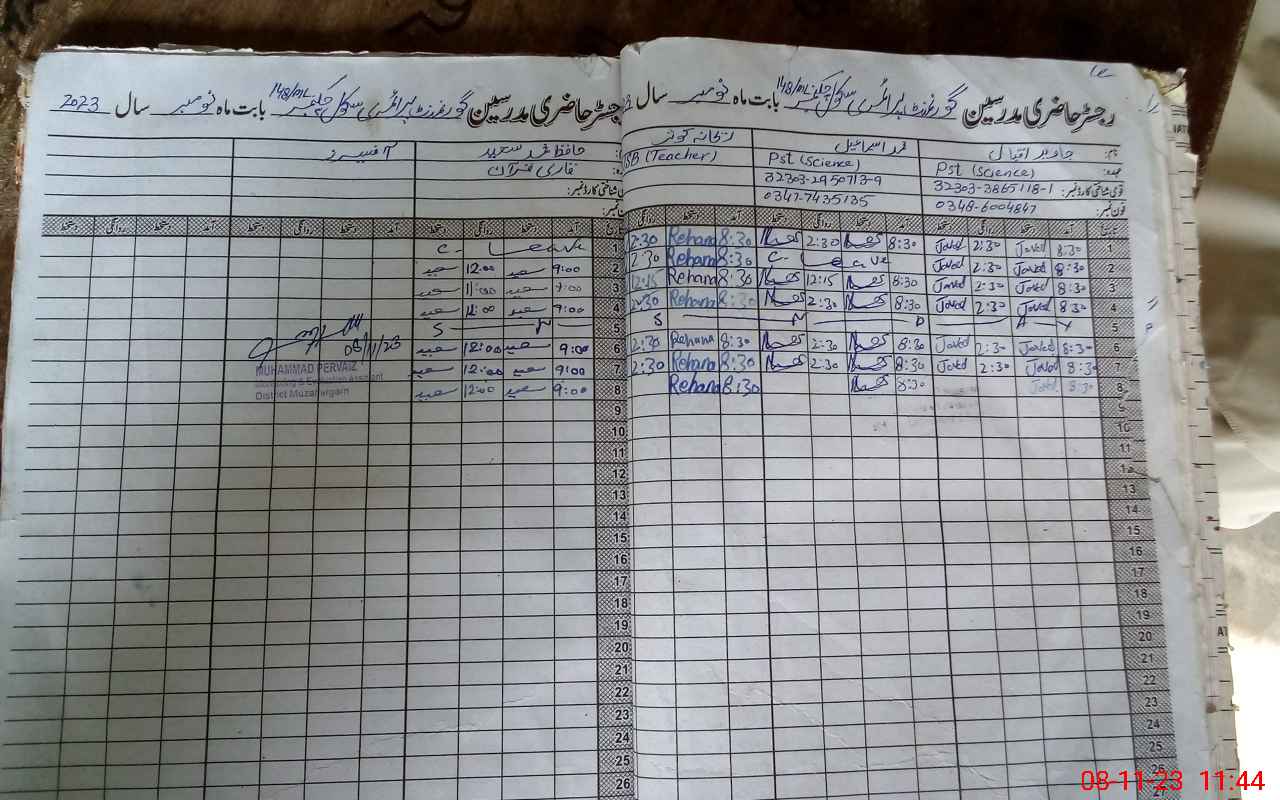 رجسٹر حاضری مدرسین گورنمنٹ پرائمری سکول چکنمبر 148/ML بابت ماہ نومبر سال
نام: جاوید اقبال
Pst (Science)
قومی شناختی کارڈ نمبر: 32303-3865118-1
فون نمبر: 0348-6004847
Pst (Science)
32303-2950713-9
0347-7435135
(Teacher)
تاریخ آمد دستخط روانگی دستخط آمد دستخط روانگی دستخط آمد دستخط
1 8:30 Javed 2:30 Javed 8:30 2:30 8:30 Rehana 2:30
2 8:30 Javed 2:30 Javed C. Leave 8:30 Rehana 2:30
3 8:30 Javed 2:30 Javed 8:30 12:15 8:30 Rehana 12:15
4 8:30 Javed 2:30 Javed 8:30 2:30 8:30 Rehana 2:30
5 S N D A Y
6 8:30 Javed 2:30 Javed 8:30 2:30 8:30 Rehana 2:30
7 8:30 Javed 2:30 Javed 8:30 2:30 8:30 Rehana 2:30
8 8:30 Javed 8:30 8:30 Rehana
9
10
11
12
13
14
15
16
17
18
19
20
21
22
23
24
25
26
27
رجسٹر حاضری مدرسین گورنمنٹ پرائمری سکول چکنمبر 148/ML بابت ماہ نومبر سال 2023
حافظ محمد سعید
قاری قرآن
شناختی کارڈ نمبر:
نمبر:
آمد دستخط روانگی دستخط آمد دستخط روانگی دستخط آمد دستخط روانگی دستخط
1 C. Leave
2 9:00 سعید 12:00 سعید
3 9:00 سعید 11:00 سعید
4 9:00 سعید 12:00 سعید
5 S N
6 9:00 سعید 12:00 سعید
7 9:00 سعید 12:00 سعید
8 9:00 سعید 12:00 سعید
9
10
11
12
13
14
15
16
17
18
19
20
21
22
23
24
25
26
08/11/23
MUHAMMAD PERVAIZ
Monitoring & Evaluation Assistant
District Muzaffargarh
08-11-23 11:44